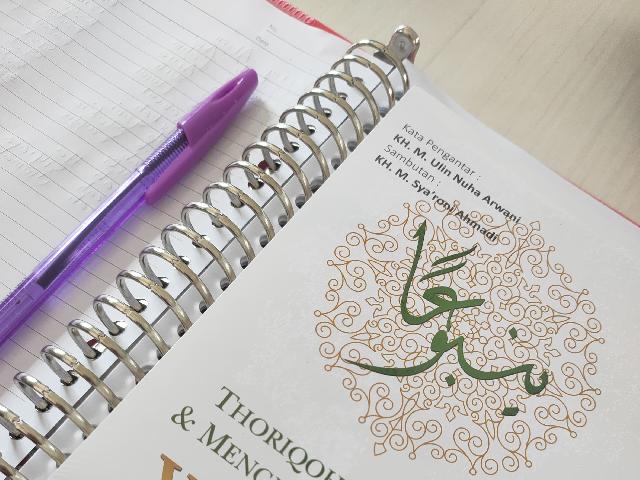 Kata Pengantar :
KH. M. Ulin Nuha Arwani
Sambutan :
KH. M. Sya'roni Ahmadi
ينبوعًا
THORIQOH
& MENG